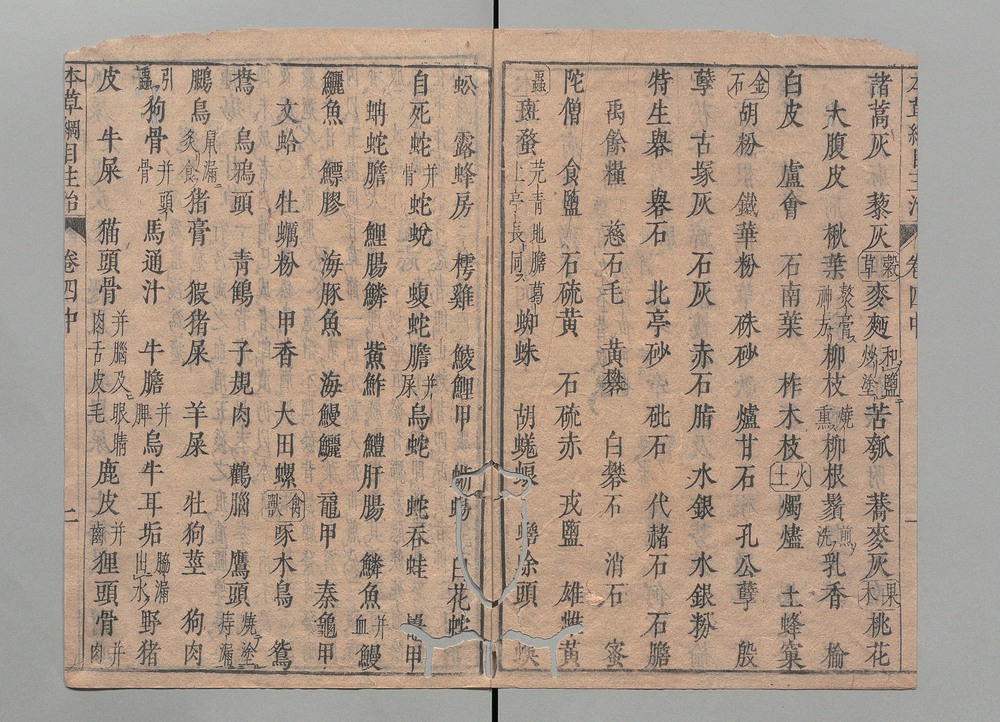 諸蒿灰 藜灰 穀草 麥麵 和鹽燒塗 苦瓠 蕎麥灰 果木 桃花
大腹皮 楸葉 熬膏神方 柳枝 燒熏 柳根鬚 煎洗 乳香 榆
白皮 盧會 石南葉 柞木枝 火土 燭燼 土蜂窠
金石 胡粉 鐵華粉 硃砂 爐甘石 孔公孽 殷
孽 古塚灰 石灰 赤石脂 水銀 水銀粉
特生礜 礜石 北亭砂 砒石 代赭石 石膽
禹餘糧 慈石毛 黃礬 白礬石 消石 蜜
陀僧 食鹽 石硫黃 石硫赤 戎鹽 雄雌黃
蟲 斑蝥 芫青 地膽 葛上亭長同 蜘蛛 胡蜣蜋 蠐螬頭
本草綱目主治 卷四中 一
蚣 露蜂房 樗雞 鯪鯉甲 蜥蜴 白花蛇
自死蛇 并骨 蛇蛻 蝮蛇膽 并屎 烏蛇 蛇吞蛙 甲
蝸蛇膽 鯉腸鱗 鮝鮓 鱧肝腸 鱗魚 并血 鰻
鱺魚 鰾膠 海豚魚 海鰻鱺 黿甲 秦龜甲
文蛤 牡蠣粉 甲香 大田螺 禽獸 啄木鳥 鴛
鴦 烏鴉頭 青鶴 子規肉 鸛腦 鷹頭 燒塗痔漏
鸕鳥 鼠漏炙食 豬膏 豭豬屎 羊屎 牡狗莖 狗肉
引蟲 狗骨 并頭骨 馬通汁 牛膽 并脾 烏牛耳垢 腸漏出水 野豬
皮 牛屎 猫頭骨 并腦及眼睛肉舌皮毛 鹿皮 并齒 狸頭骨 并肉
本草綱目主治 卷四中 二